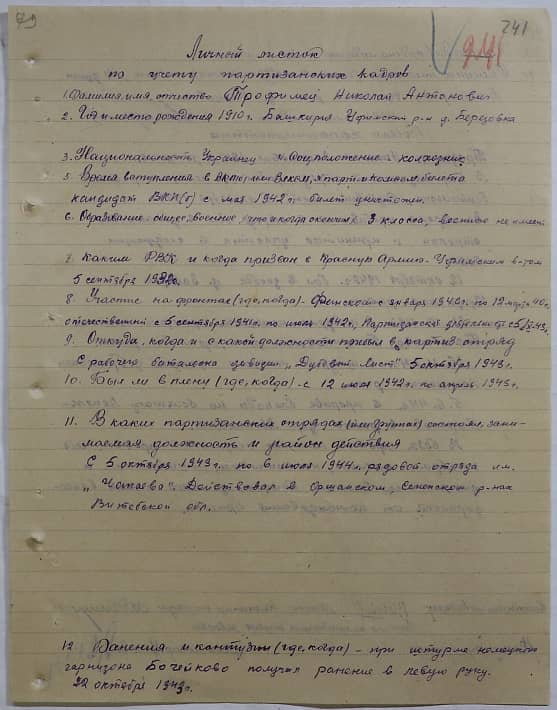 79
241
241
Личный листок
по учету партизанских кадров
1. Фамилия, имя, отчество Трофимец Николай Антонович
2. Год и место рождения 1910 г. Башкирия Уфимский р-н д. Березовка
3. Национальность Украинец 4. Соц. положение колхозник
5. Время вступления в ВКП(б) или ВЛКСМ, № парт. или комсом. билета
кандидат ВКП(б) с мая 1942 г. билет уничтожен.
6. Образование общее, военное, что и когда окончил 3 класса, военного не имеет
7. Каким РВК и когда призван в Красную Армию - Уфимским в-том
5 сентября
8. Участие на фронтах (где, когда) - Финском с января 1940 г. по 12 марта 40 г.
отечественной с 5 сентября 1941 г. по июль 1942 г. Партизанское движение с 5/X 43 г.
9. Откуда, когда и с какой должности прибыл в партиз. отряд
С рабочего батальона авиации "Дубовый Лист" 5 октября 1943 г.
10. Был ли в плену (где, когда) - с 12 июля 1942 г. по апрель 1943 г.
11. В каких партизанских отрядах (или группах) состоял, зани-
маемая должность и район действия
С 5 октября 1943 г. по 6 июля 1944 г. рядовой отряда им.
"Чапаева". Действовал в Оршанском, Сененском р-нах
Витебской обл.
12. Ранения и контузии (где, когда) - при штурме немецкого
гарнизона Бочейково получил ранение в левую руку.
22 октября 1943 г.